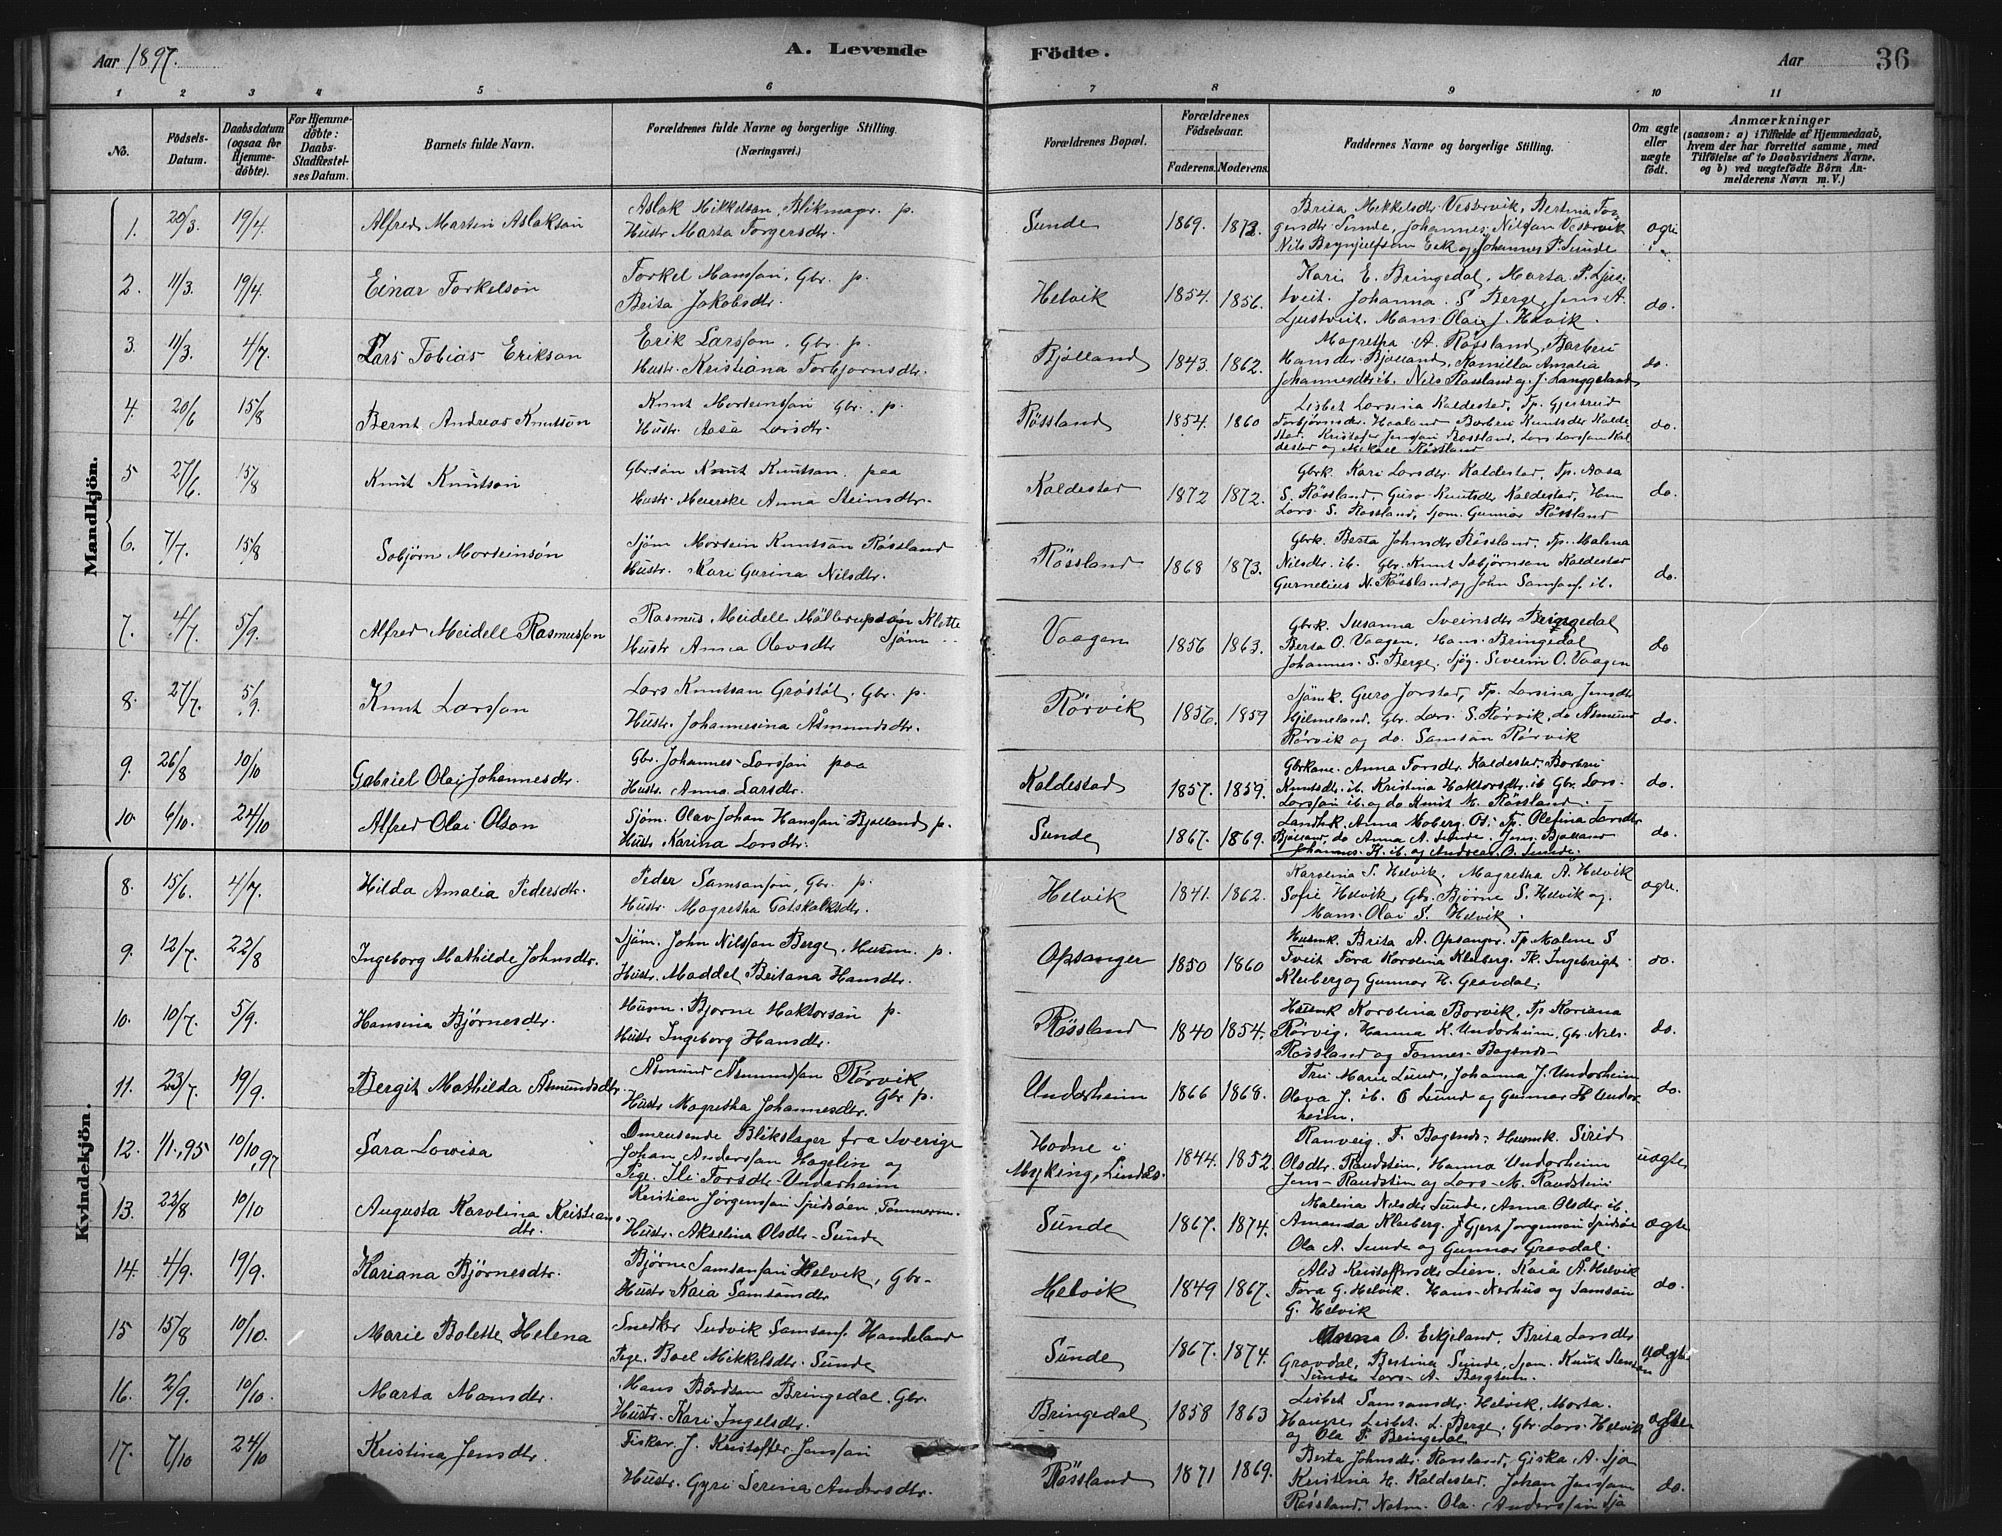 Aar 1897. A. Levende Födte. Aar 36
1 2 3 4 5 6 7 8 9 10 11
No.
Födsels-Datum.
Daabsdatum (ogsaa for Hjemme-döbte).
For Hjemme-döbte: Daabs-Stadfæstel-ses Datum.
Barnets fulde Navn.
Forældrenes fulde Navne og borgerlige Stilling. (Næringsvei.)
Forældrenes Bopæl.
Forældrenes Födselsaar.
Faderens. Moderens.
Faddernes Navne og borgerlige Stilling.
Om ægte eller uægte födt.
Anmærkninger
(saasom: a) i Tilfælde af Hjemmedaab, hvem der har forrettet samme, med Tilföielse af to Daabsvidners Navne, og b) ved uægtefödte Börn An-melderens Navn m.V.)
Mandkjön.
1. 20/3 19/4 Alfred Martin Aslakson
Aslak Mikkelson, Blikmagr. p.
Hustr Marta Torgersdtr.
Sunde 1869. 1872.
Brita Mikkelsdtr Vestervik, Bertina Tor-
gersdtr Sunde, Johannes Nilsan Vestervik
Nils Brynjulfson Eik og Johannes P. Sunde
ægte
2. 11/3. 19/4. Einar Torkelson
Torkel Mansson, Gbr. p.
Brita Jakobsdtr.
Helvik 1854. 1856.
Kari E. Bringedal, Marta P. Ljus-
tveit. Johanna S. Berge, Jens A.
Ljustveit, Mans Olai J. Helvik.
do.
3. 11/3. 4/7. Lars Tobias Erikson
Erik Larsson, Gbr. p.
Hustr. Kristiana Torbjornsdtr.
Bjølland 1843. 1862.
Magretha A. Røssland, Barbru
Hansdtr Bjølland, Kamilla Amalia
Johannesdtr ib. Nils Røssland og J. Langgeland
do.
4. 20/6 15/8 Bernt Andreas Knutson
Knut Morteinsson Gbr. p.
Hustr. Aasa Larsdtr.
Røssland 1854. 1860
Lisbet Larsina Kaldestad, Tp. Gjertrud
Torbjørnsdtr. Haaland Barbru Knutsdtr Kalde-
stad, Kristofer Jensson Rossland, Lars Larsson Kal
destad og Mikael Røssland
do.
5 27/6. 15/8 Knut Knutson
Gbrsøn Knut Knutson. paa
Hustr Meierske Anna Steinsdtr.
Kaldestad 1872 1872.
Gbrk. Kari Larsdtr. Kaldestad, Tp. Aasa
S. Røssland, Guro Knutsdtr Kaldestad,
Lars S. Røssland, Sjom. Gunnar Røssland
do.
6. 7/7. 15/8 Sobjørn Morteinsøn
Sjøm Mortein Knutson Røssland
Hustr. Kari Gurina Nilsdtr.
Røssland 1868 1873.
Gbrk. Berta Johnsdtr Røssland, Tp. Malena
Nilsdtr. ib. Gbr. Knut Sobjørnson Kaldestad
Gurnelius N. Røssland og John Samsons. ib.
do.
7. 4/7. 5/9. Alfred Meidell Rasmusson
Rasmus Meidell Møllerupsøn Klette
Hustr Anna Olavsdtr Sjøm
Vaagen 1856 1863.
Gbrk. Susanna Sveinsdtr Bringedal
Berta O. Vaagen. Hans Bringedal
Johannes S. Berge. Sjøg. Severin O. Vaagen
do
8. 27/7. 5/9. Knut Larsson
Lars Knutson Grøstøl, Gbr. p.
Hustr. Johannesina Åsmundsdtr.
Rørvik 1856. 1859
Sjømk. Guro Jorstad, Tp. Larsina Jensdtr
Hjelmeland, Gbr. Lars S. Rørvik, do Åsmund
Rørvik og do. Samsan Rørvik
do.
9. 26/8 10/10 Gabriel Olai Johannesdtr.
Gbr. Johannes Larsson paa
Hustr. Anna Larsdtr.
Kaldestad 1857. 1859.
Gbrkone. Anna Torsdtr. Kaldestad, Barbru
Knutsdtr. ib. Kristina Haktorsdtr. ib Gbr. Lars
Larsson ib. og do Knut M. Røssland.
do.
10. 6/10. 24/10 Alfred Olai Olson
Sjøm. Olav Johan Hansson Bjølland p.
Hustr Karina Larsdtr.
Sunde 1867. 1869.
Landhk. Anna Moberg. Os; Tp. Olefina Larsdtr
Bjølland, do Anna A. Sunde. Jens Bjølland
Johannes K. ib. og Andreas O. Sunde.
do.
Kvindekjön.
8. 15/6. 4/7. Hilda Amalia Pedersdtr.
Peder Samsonson, Gbr. p.
Hustr. Magretha Gotskalksdtr.
Helvik 1841. 1862.
Karolina T. Helvik, Magretha Å. Helvik
Sofie Helvik, Gbr. Bjørne S. Helvik og
Mans Olai S. Helvik.
ægte.
9. 12/7. 22/8 Ingeborg Mathilde Johnsdtr.
Sjøm. John Nilsson Berge, Husm. p.
Hustr. Maddel Beitana Hansdtr.
Opsanger 1850 1860
Husmk. Brita A. Opsanger. Tp. Malene S
Tveit Tora Karolina Kleberg. Tk. Ingebrigt
Kleberg og Gunnar H. Gravdal.
do.
10. 10/7. 5/9. Hansina Bjørnesdtr.
Husm. Bjorne Haktorson p.
Hustr Ingeborg Hansdtr.
Røssland 1840 1854.
Husmk Karolina Borvik, Tp Kariana
Rørvig, Hanna K. Undarheim, Gbr. Nils
Røssland og Tonnes Bogends-
do.
11. 23/7. 19/9. Bergit Mathilda Åsmundsdtr.
Åsmund Åsmundson Rørvik
Hustr Magretha Johannesdtr. Gbr p.
Undarheim 1866 1868.
Fru Marie Lund, Johanna J. Undarheim
Olava J. ib. O Lund og Gunnar H Undar
heim.
do.
12. 1/1, 95 10/10, 97 Sara Lovisa
Omreisende Blikslager fra Sverige
Johan Andersson Hagelin og
Pige Ili Torsdtr Undarheim
Hodne i
Myking, Lindås. 1844. 1852
Ranveig T. Bogends- Husmk. Sirid
Olsdtr. Raudstein, Hanna Undarheim
Jens Raudstein og Lars M. Raudstein
uægte
13. 22/8 10/10 Augusta Karolina Kristians
dtr.
Kristian Jørgensson Spidsøen Tømmerm.
Hustr. Akselina Olsdtr Sunde
Sunde 1867. 1874.
Malina Nilsdtr Sunde, Anna Olsdtr ib.
Amanda Kleberg. Gjert Jorgenson Spidsøe
Ola A. Sunde og Gunnar Gravdal.
ægte
14. 4/9. 19/9. Kariana Bjørnesdtr.
Bjørne Samsonson Helvik, Gbr-
Hustr Kaia Samsonsdtr
Helvik 1849 1867.
Alis Kristoffersdtr Lien, Kaia A. Helvik
Tora G. Helvik. Hans Nerhus og Samson
G. Helvik
do.
15 15/8 10/10. Marie Bolette Helena
Snedker Ludvik Samsons. Handeland
Pige. Boel Mikkelsdtr. Sunde
Sunde 1867. 1874.
Anna O. Eikjeland, Brita Larsdtr
Gravdal, Bertina Sunde, Sjom. Knut Stensøn
Sunde Lars A. Bergstein.
uægte
16. 2/9. 10/10. Marta Mansdtr.
Mans Bårdson Bringedal, Gbr.
Hustr. Kari Ingelsdtr.
Bringedal 1858 1863
Lisbet Samsonsdtr. Helvik, Marta
Hauges Lisbet L. Berge, Gbr Lars Helvik
og Ola T. Bringedal
ægte
17. 7/10 24/10 Kristina Jensdtr.
Fisker J. Kristoffer Jonsson
Hustr. Gyri Serina Andersdtr.
Røssland 1871 1869.
Berta Johnsdtr. Røssland, Giska A. Sjo
Kristina H. Kaldestad, Johan Jensson
Røssland, Natm. Ola Andersson Sjo
do.